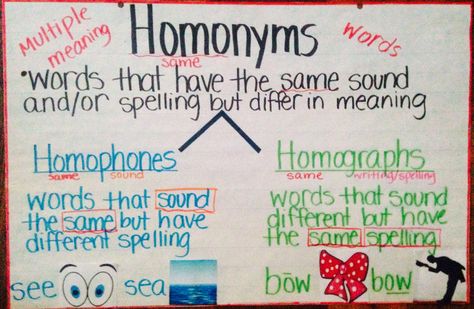 Multiple
meaning
Homonyms
same
words
•words that have the same sound
and/or spelling but differ in meaning
Homophones
same sound
words that sound
the same but have
different spelling
see sea
Homographs
same writing/spelling
words that sound
different but have
the same spelling
bōw bow